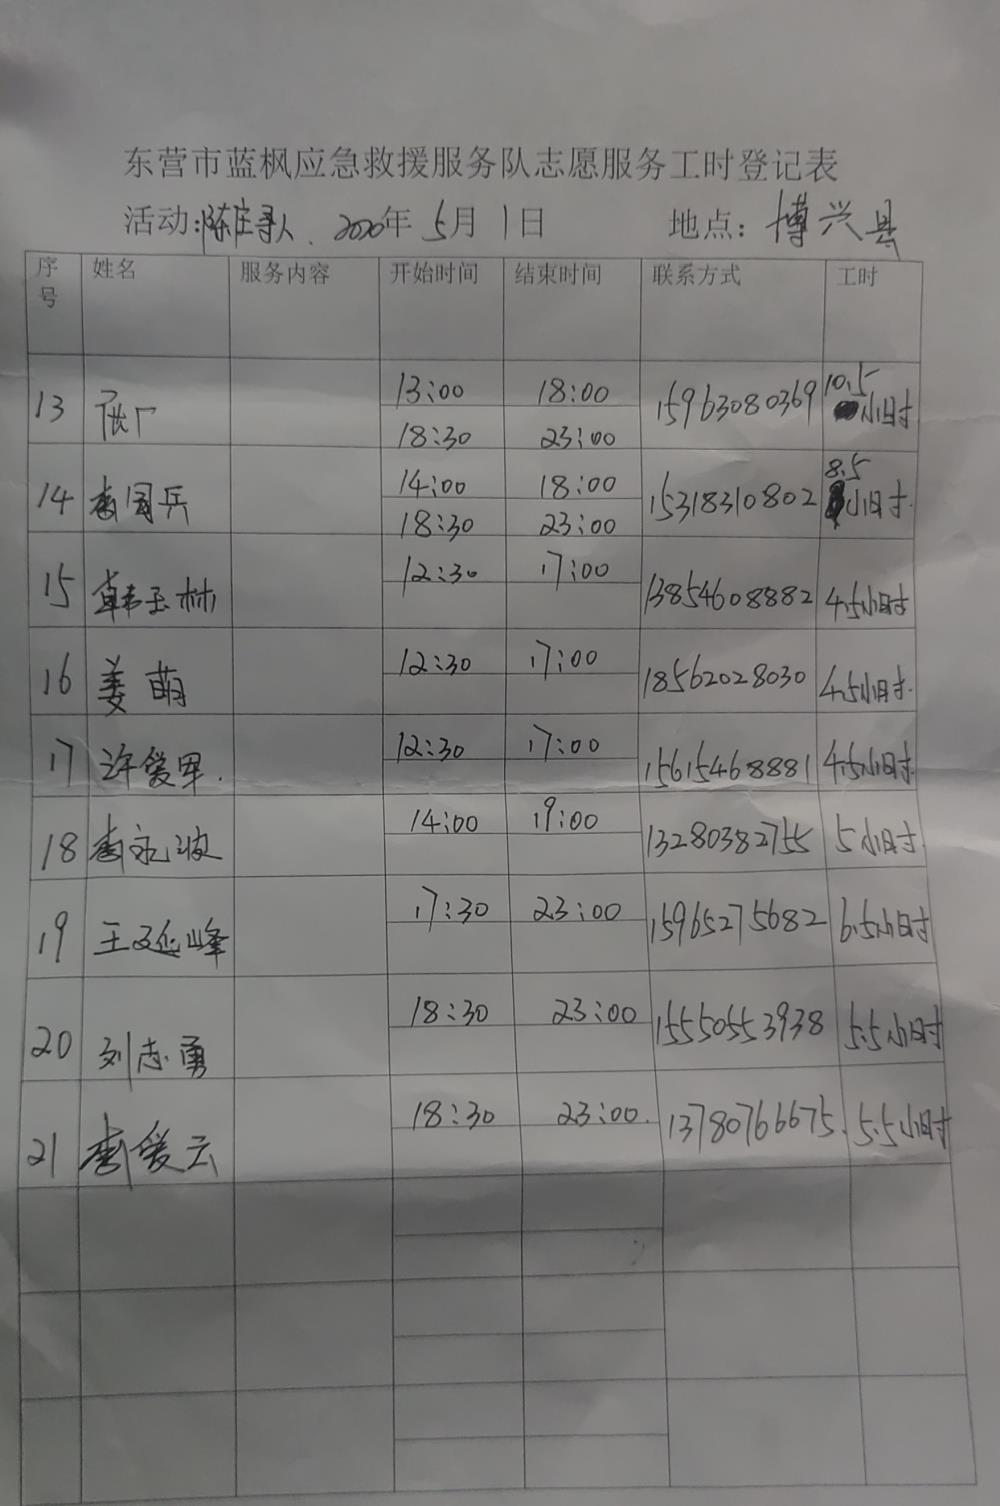 东营市蓝枫应急救援服务队志愿服务工时登记表
活动:陈庄寻人、2020年5月1日 地点:博兴县
序号 姓名 服务内容 开始时间 结束时间 联系方式 工时
13 13:00 18:00 15963080369 10.5小时
18:30 23:00
14 李国兵 14:00 18:00 15318310802 8.5小时.
18:30 23:00
15 韩玉林 12:30 17:00 13854608882 4.5小时
16 姜萌 12:30 17:00 18562028030 4.5小时.
17 许爱军. 12:30 17:00 15615468881 4.5小时.
18 李永波 14:00 19:00 13280382755 5小时.
19 王延峰 17:30 23:00 15965275682 6.5小时
20 刘志勇 18:30 23:00 15550553938 5.5小时
21 李爱云 18:30 23:00. 13780766675. 5.5小时